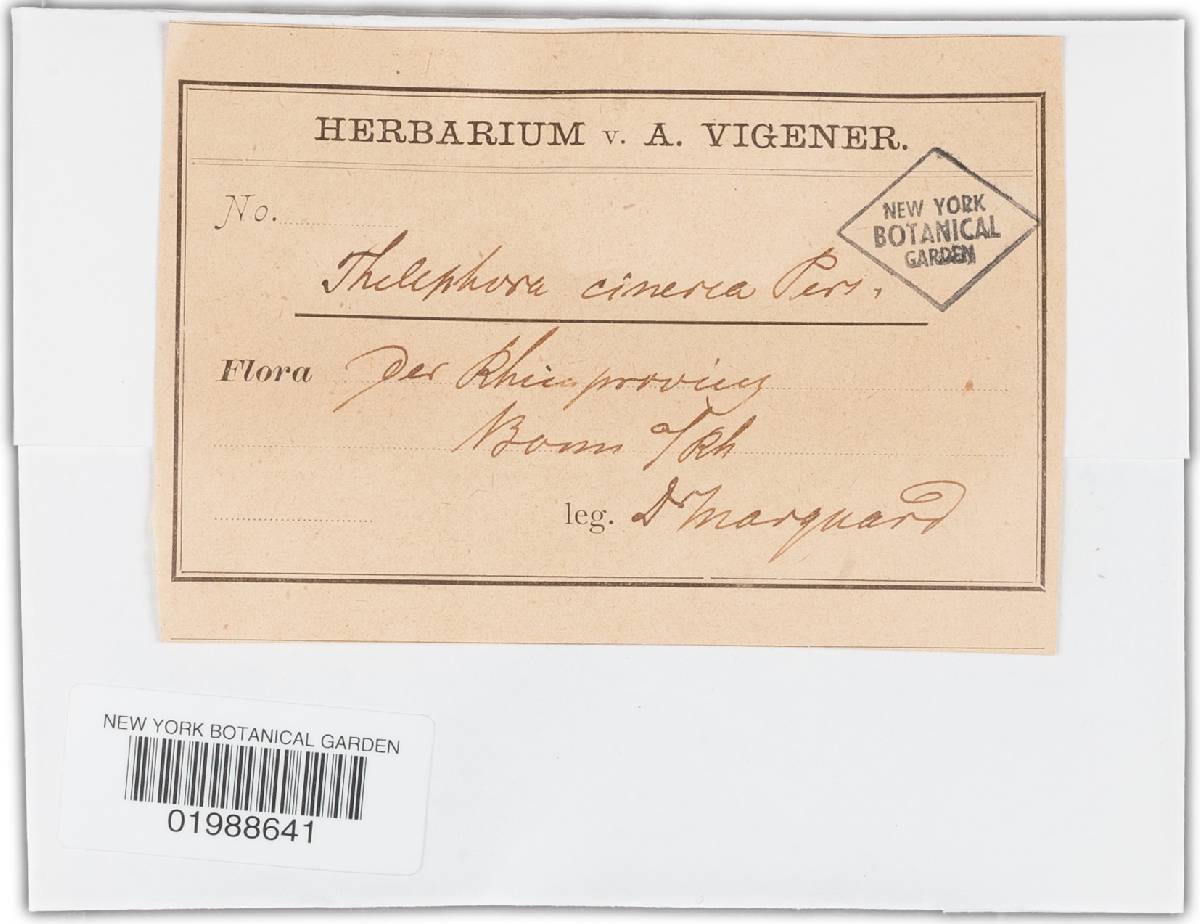 HERBARIUM v. A. VIGENER.
No.
NEW YORK
BOTANICAL
GARDEN
Thelephora cinerea Pers.
Flora der Rheinprovinz
Bonn a/Rh
leg. Dr Marquard
NEW YORK BOTANICAL GARDEN
01988641